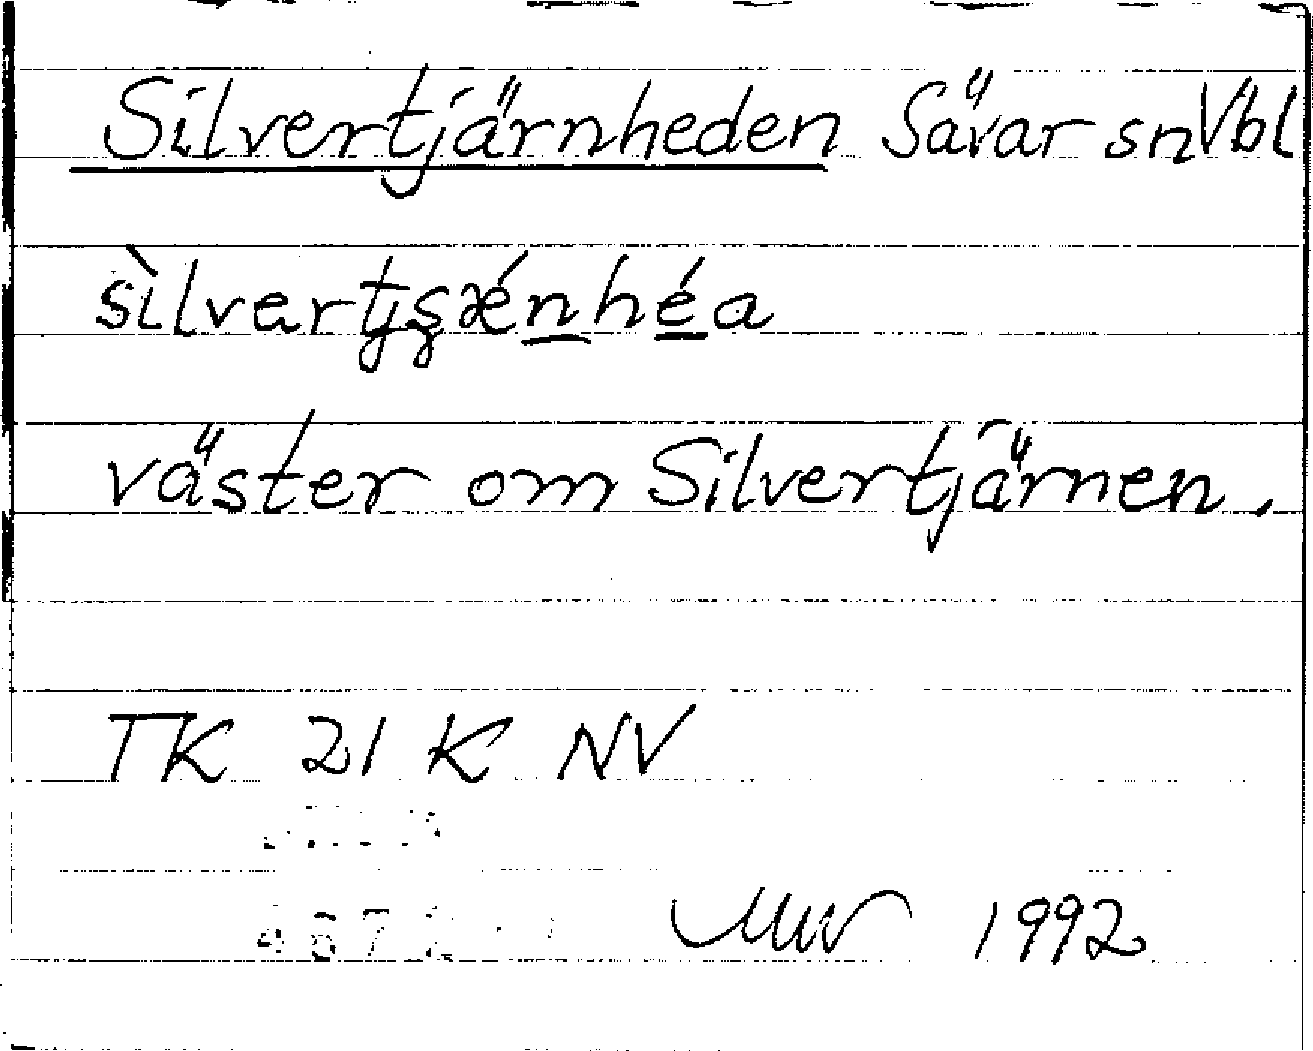 Silvertjärnheden Sävar sn Vbl
sìlvertjʂǽnhéa
väster om Silvertjärnen.
TK 21 K NV
1992